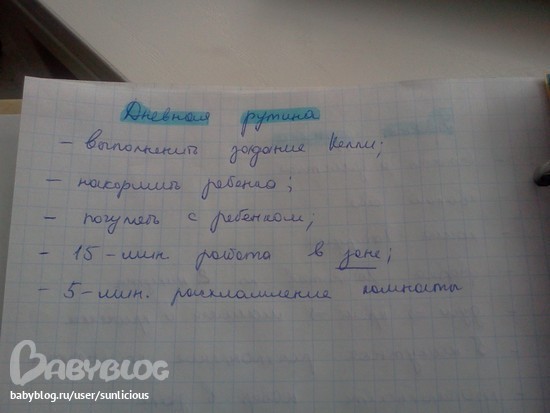 Дневная рутина
- выполнить задание Келли;
- накормить ребенка;
- погулять с ребенком;
- 15-мин. работа в зоне;
- 5-мин. расхламление комнаты
BABYBLOG
babyblog.ru/user/sunlicious